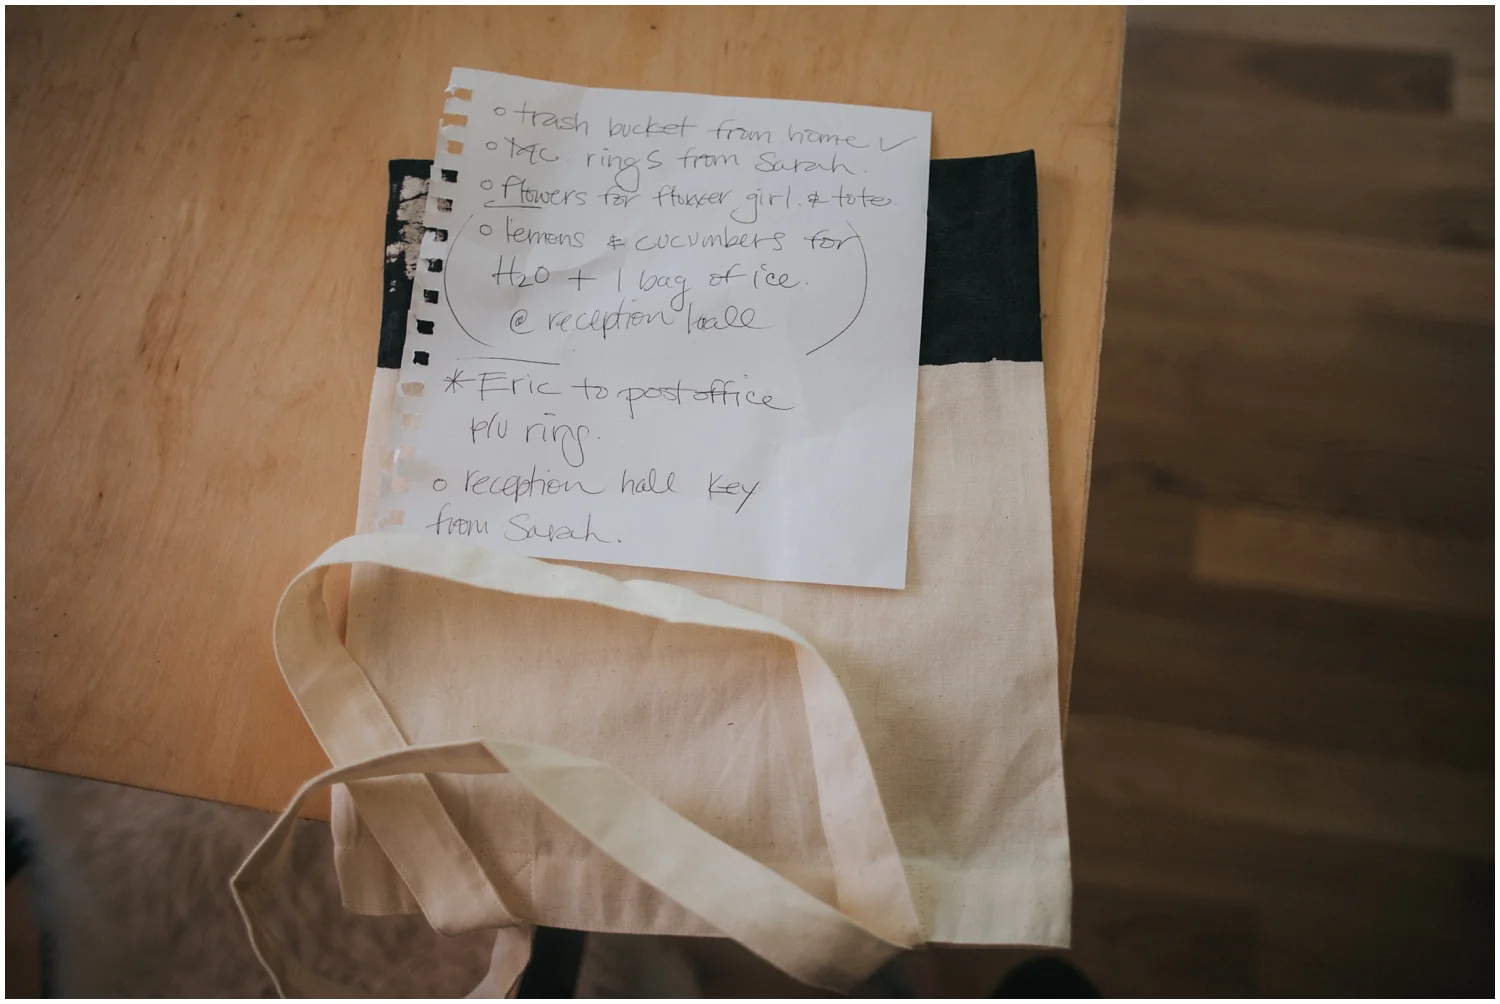 o trash bucket from home ✓
o rings from Sarah.
o flowers for flower girl. & tote.
(o lemons & cucumbers for
H2O + 1 bag of ice.
@ reception hall)
* Eric to post office
p/u ring.
o reception hall key
from Sarah.